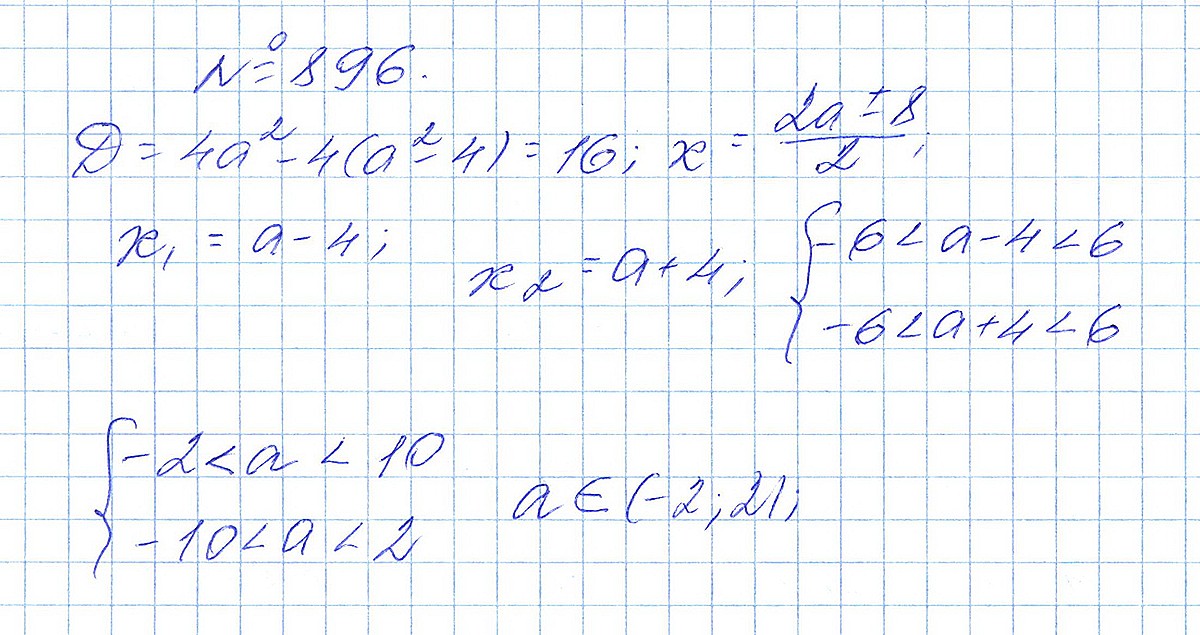 № 896.
D = 4a² - 4(a² - 4) = 16; x = (2a ± 8)/2;
x₁ = a - 4; x₂ = a + 4; { -6 < a - 4 < 6
-6 < a + 4 < 6
{ -2 < a < 10
-10 < a < 2 a ∈ (-2; 2);